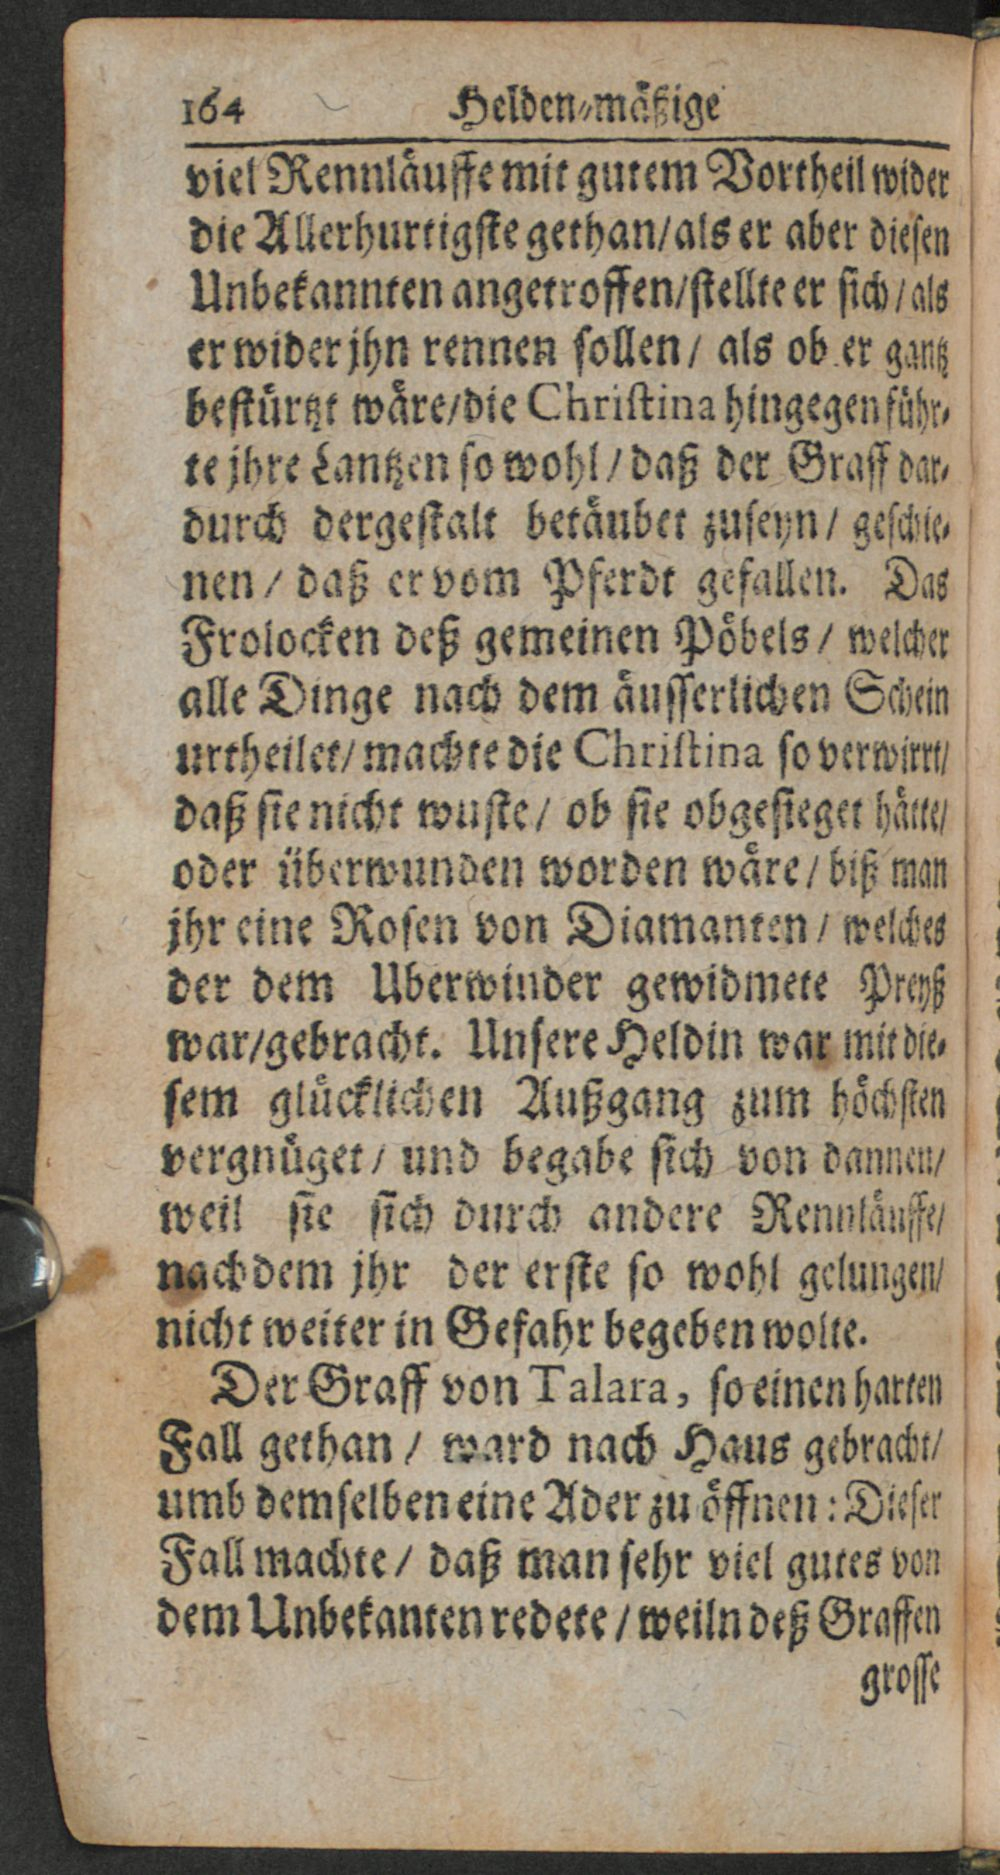 164 Helden-mäßige
viel Rennläuffe mit gutem Vortheil wider
die Allerhurtigste gethan/als er aber diesen
Unbekannten angetroffen/stellte er sich/als
er wider jhn rennen sollen/ als ob er gantz
bestürtzt wäre/die Christina hingegen führ-
te jhre Lantzen so wohl/ daß der Graff dar-
durch dergestalt betäubet zuseyn/ geschie-
nen/ daß er vom Pferdt gefallen. Das
Frolocken deß gemeinen Pöbels/ welcher
alle Dinge nach dem äusserlichen Schein
urtheilet/ machte die Christina so verwirrt/
daß sie nicht wuste/ ob sie obgesieget hätte/
oder überwunden worden wäre/ biß man
jhr eine Rosen von Diamanten/ welches
der dem Uberwinder gewidmete Preyß
war/gebracht. Unsere Heldin war mit die-
sem glücklichen Außgang zum höchsten
vergnüget/ und begabe sich von dannen/
weil sie sich durch andere Rennläuffe/
nachdem jhr der erste so wohl gelungen/
nicht weiter in Gefahr begeben wolte.
Der Graff von Talara, so einen harten
Fall gethan/ ward nach Haus gebracht/
umb demselben eine Ader zu öffnen: Dieser
Fall machte/ daß man sehr viel gutes von
dem Unbekanten redete/ weiln deß Graffen
grosse